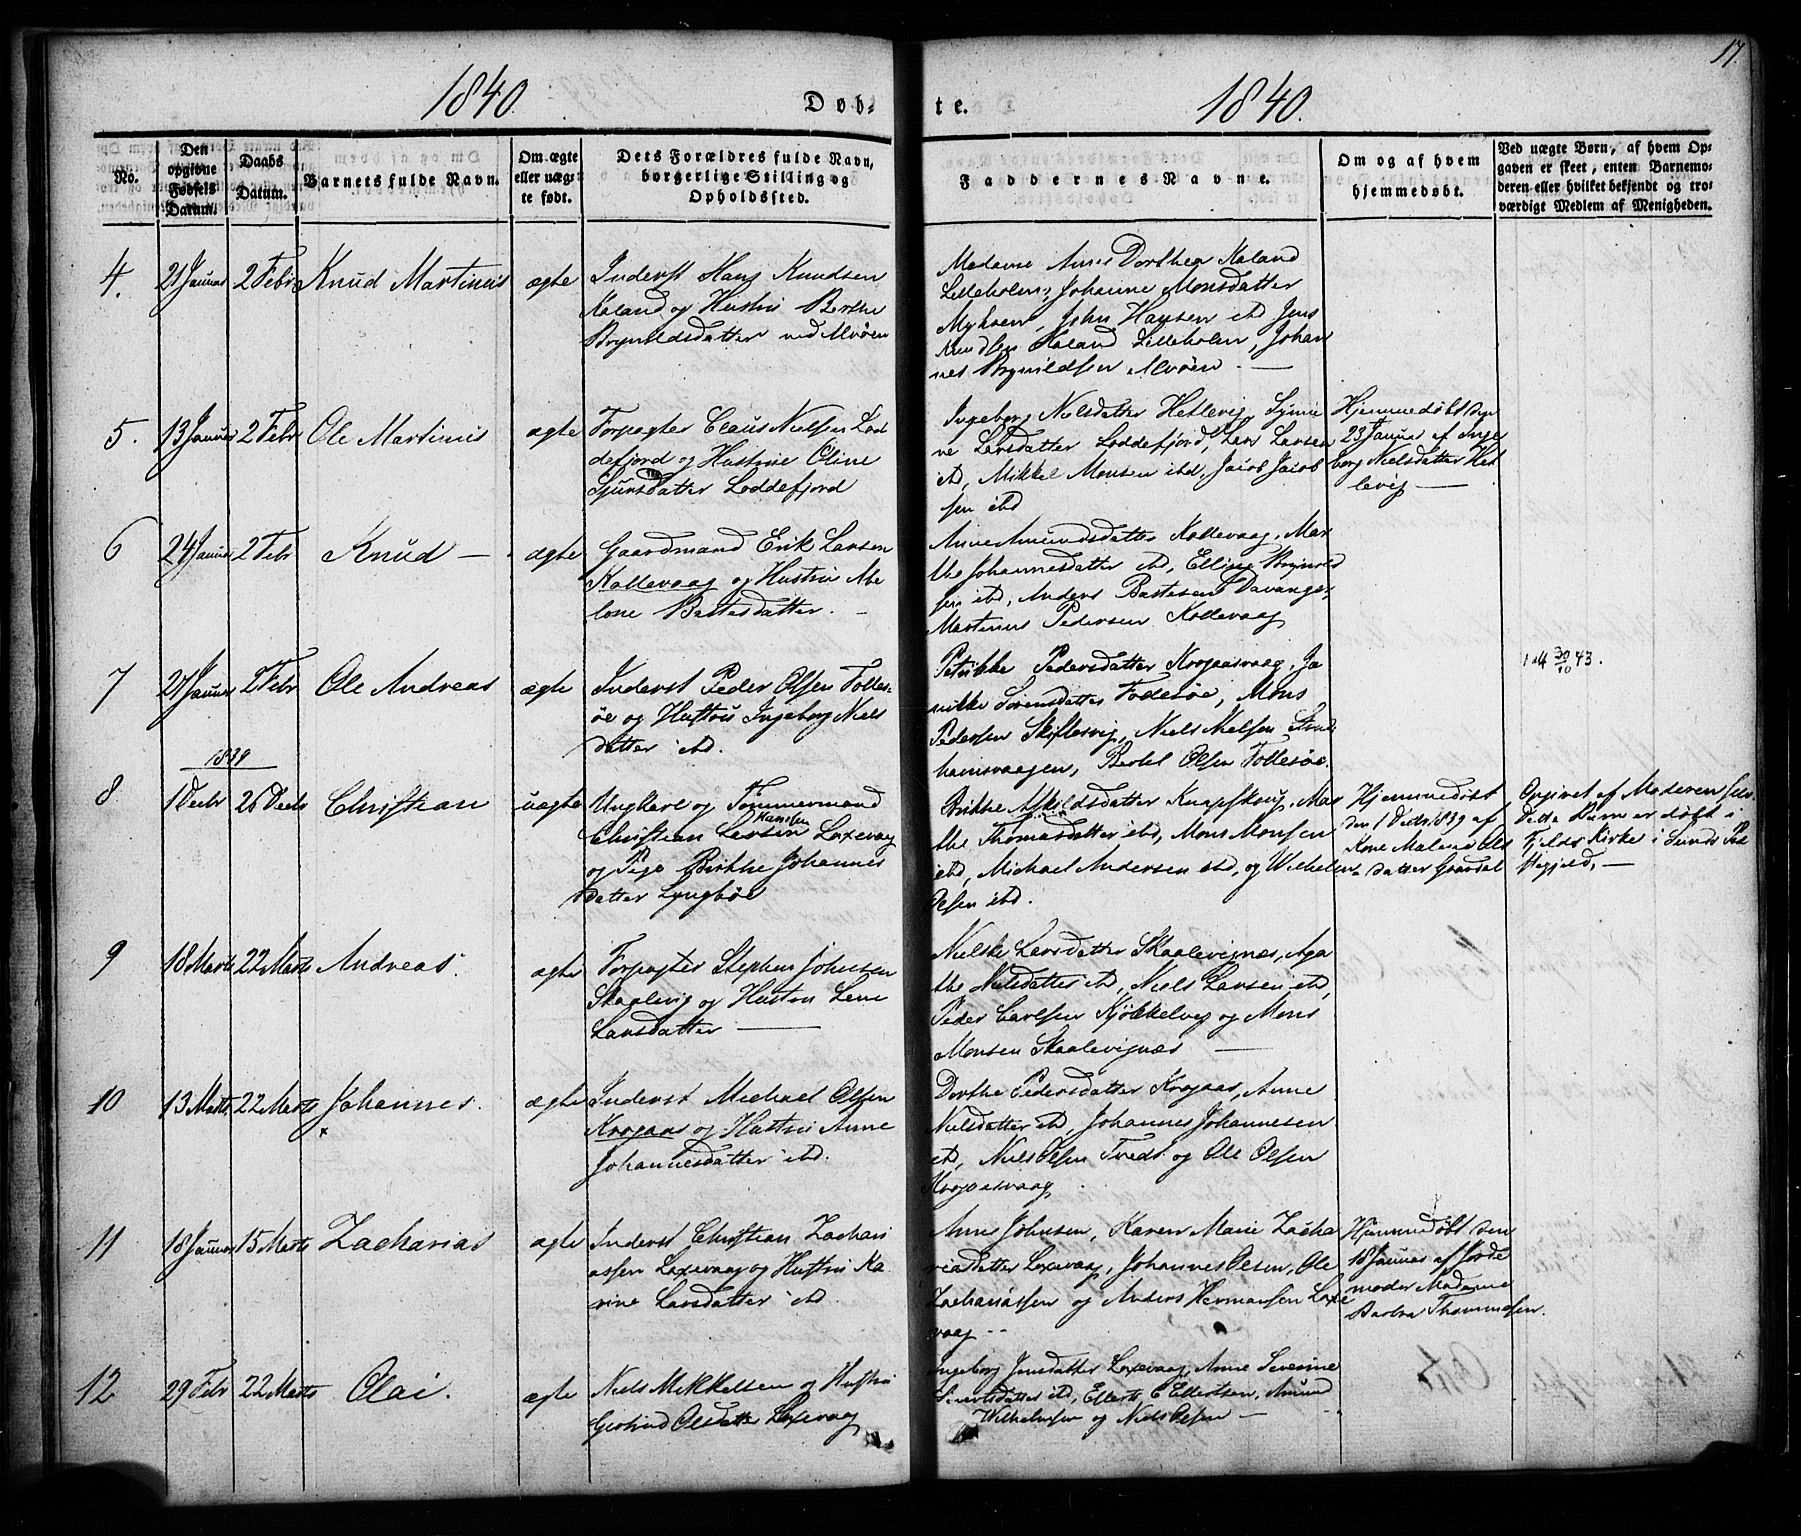 17.
1840. Døb- te. 1840.
No.
Den opgivne Fødsels Datum.
Daabs Datum.
Barnets fulde Navn.
Om ægte eller uægte født.
Dets Forældres fulde Navn, borgerlige Stilling og Opholdssted.
Faddernes Navne.
Om og af hvem hjemmedøbt.
Ved uægte Børn, af hvem Opgaven er skeet, enten Barnemoderen eller hvilket bekjendt og troværdigt Medlem af Menigheden.
4. 21 Januar 2 Febr Knud Martinus ægte
Inderst Hans Knudsen
Haland og Hustru Berthe
Brynildsdatter ved Alvøen
Madame Anne Dorthea Haland
Lilleholen, Johanne Monsdatter
Myhren, John Hansen ibd Jens
Knudsen Haland Lilleholen, Johan
nes Brynildsen Alvøen
5. 13 Januar 2 Febr Ole Martinus ægte
Forpagter Claus Nielsen Lod
defjord og Hustrue Oline
Sjursdatter Loddefjord
Ingeborg Nielsdatter Hetlevig,
ne Larsdatter Loddefjord, Lars Larsen
ibd, Mikkel Monsen ibd, Jacob Jacob
sen ibd
Hjemmedøbt den
23 Januar af Inge
borg Nielsdatter Het
levig
6 24 Januar 2 Febr Knud ægte
Gaardmand Erik Larsen
Kollevaag og Hustru Abe
lone Bastesdatter.
Anne Amundsdatter Kollevaag, Mar
the Johannesdatter ibd, Elling Brynild
sen ibd, Anders Bastesen Davanger,
Martinus Pedersen Kollevaag
7 27 Januar 2 Febr Ole Andreas ægte
Inderst Peder Olsen Folles-
øe og Hustru Ingeborg Niels
datter ibd.
Petrikke Pedersdatter Krogaasvaag, Ja
nikke Sørensdatter Follesøe, Mons
Pedersen Skiftesvig, Niels Nielsen Strud
hamsvaagen, Berthel Olsen Follesøe.
30/10 43.
1839
8 1 Decbr 26 Decbr Christian uægte
Ungkarl og Tømmermand
Hansen
Christian Larsen Laxevaag
og Pige Birthe Johannes
datter Lyngbøe
Birthe Askildsdatter Knapskoug, Mar
the Thomasdatter ibd, Mons Monsen
ibd, Michael Andersen ibd, og Wilhelm
Olsen ibd.
Hjemmedøbt
den 1 Decbr 1839 af
Ane Malene Ols
datter Gravdal
Opgivet af Moderen selv
Dette Barn er døbt i
Fjelds Kirke i Sunds Præ
stegjeld,
9 18 Marts 22 Marts Andreas. ægte
Forpagter Stephen Johnsen
Skaalevig og Hustru Lene
Larsdatter
Nielske Larsdatter Skaalevignæs, Aga
the Nielsdatter ibd, Niels Larsen ibd,
Peder Carlsen Kjøkkelvig og Mons
Monsen Skaalevignæs
10 13 Marts 22 Marts Johannes. ægte
Inderst Michael Olsen
Krogaas og Hustru Anne
Johannesdatter ibd.
Dorthe Pedersdatter Krogaas, Anne
Nielsdatter ibd, Johannes Johannesen
ibd, Niels Olsen Tvedt og Ole Olsen
Krogaasvaag
11 18 Januar 15 Marts Zacharias ægte
Inderst Christian Zachari
assen Laxevaag og Hustru Ka
rine Larsdatter ibd
Anne Johnsen, Karen Marie Zacha
riasdatter Laxevaag, Johannes Olsen, Ole
Zachariassen og Anders Hermansen Laxe
vaag
Hjemmedøbt den
18 Januar af Jorde
moder Madame
Barbra Thommesen.
12 29 Febr 22 Marts Olai. ægte
Niels Mikkelsen og Hustru
Gertrud Olsdatter Laxevaag
Ingeborg Jensdatter Laxevaag, Anne Severine
Sivertsdatter ibd, Ellert C Ellertsen, Amund
Wilhelmsen og Niels Olsen